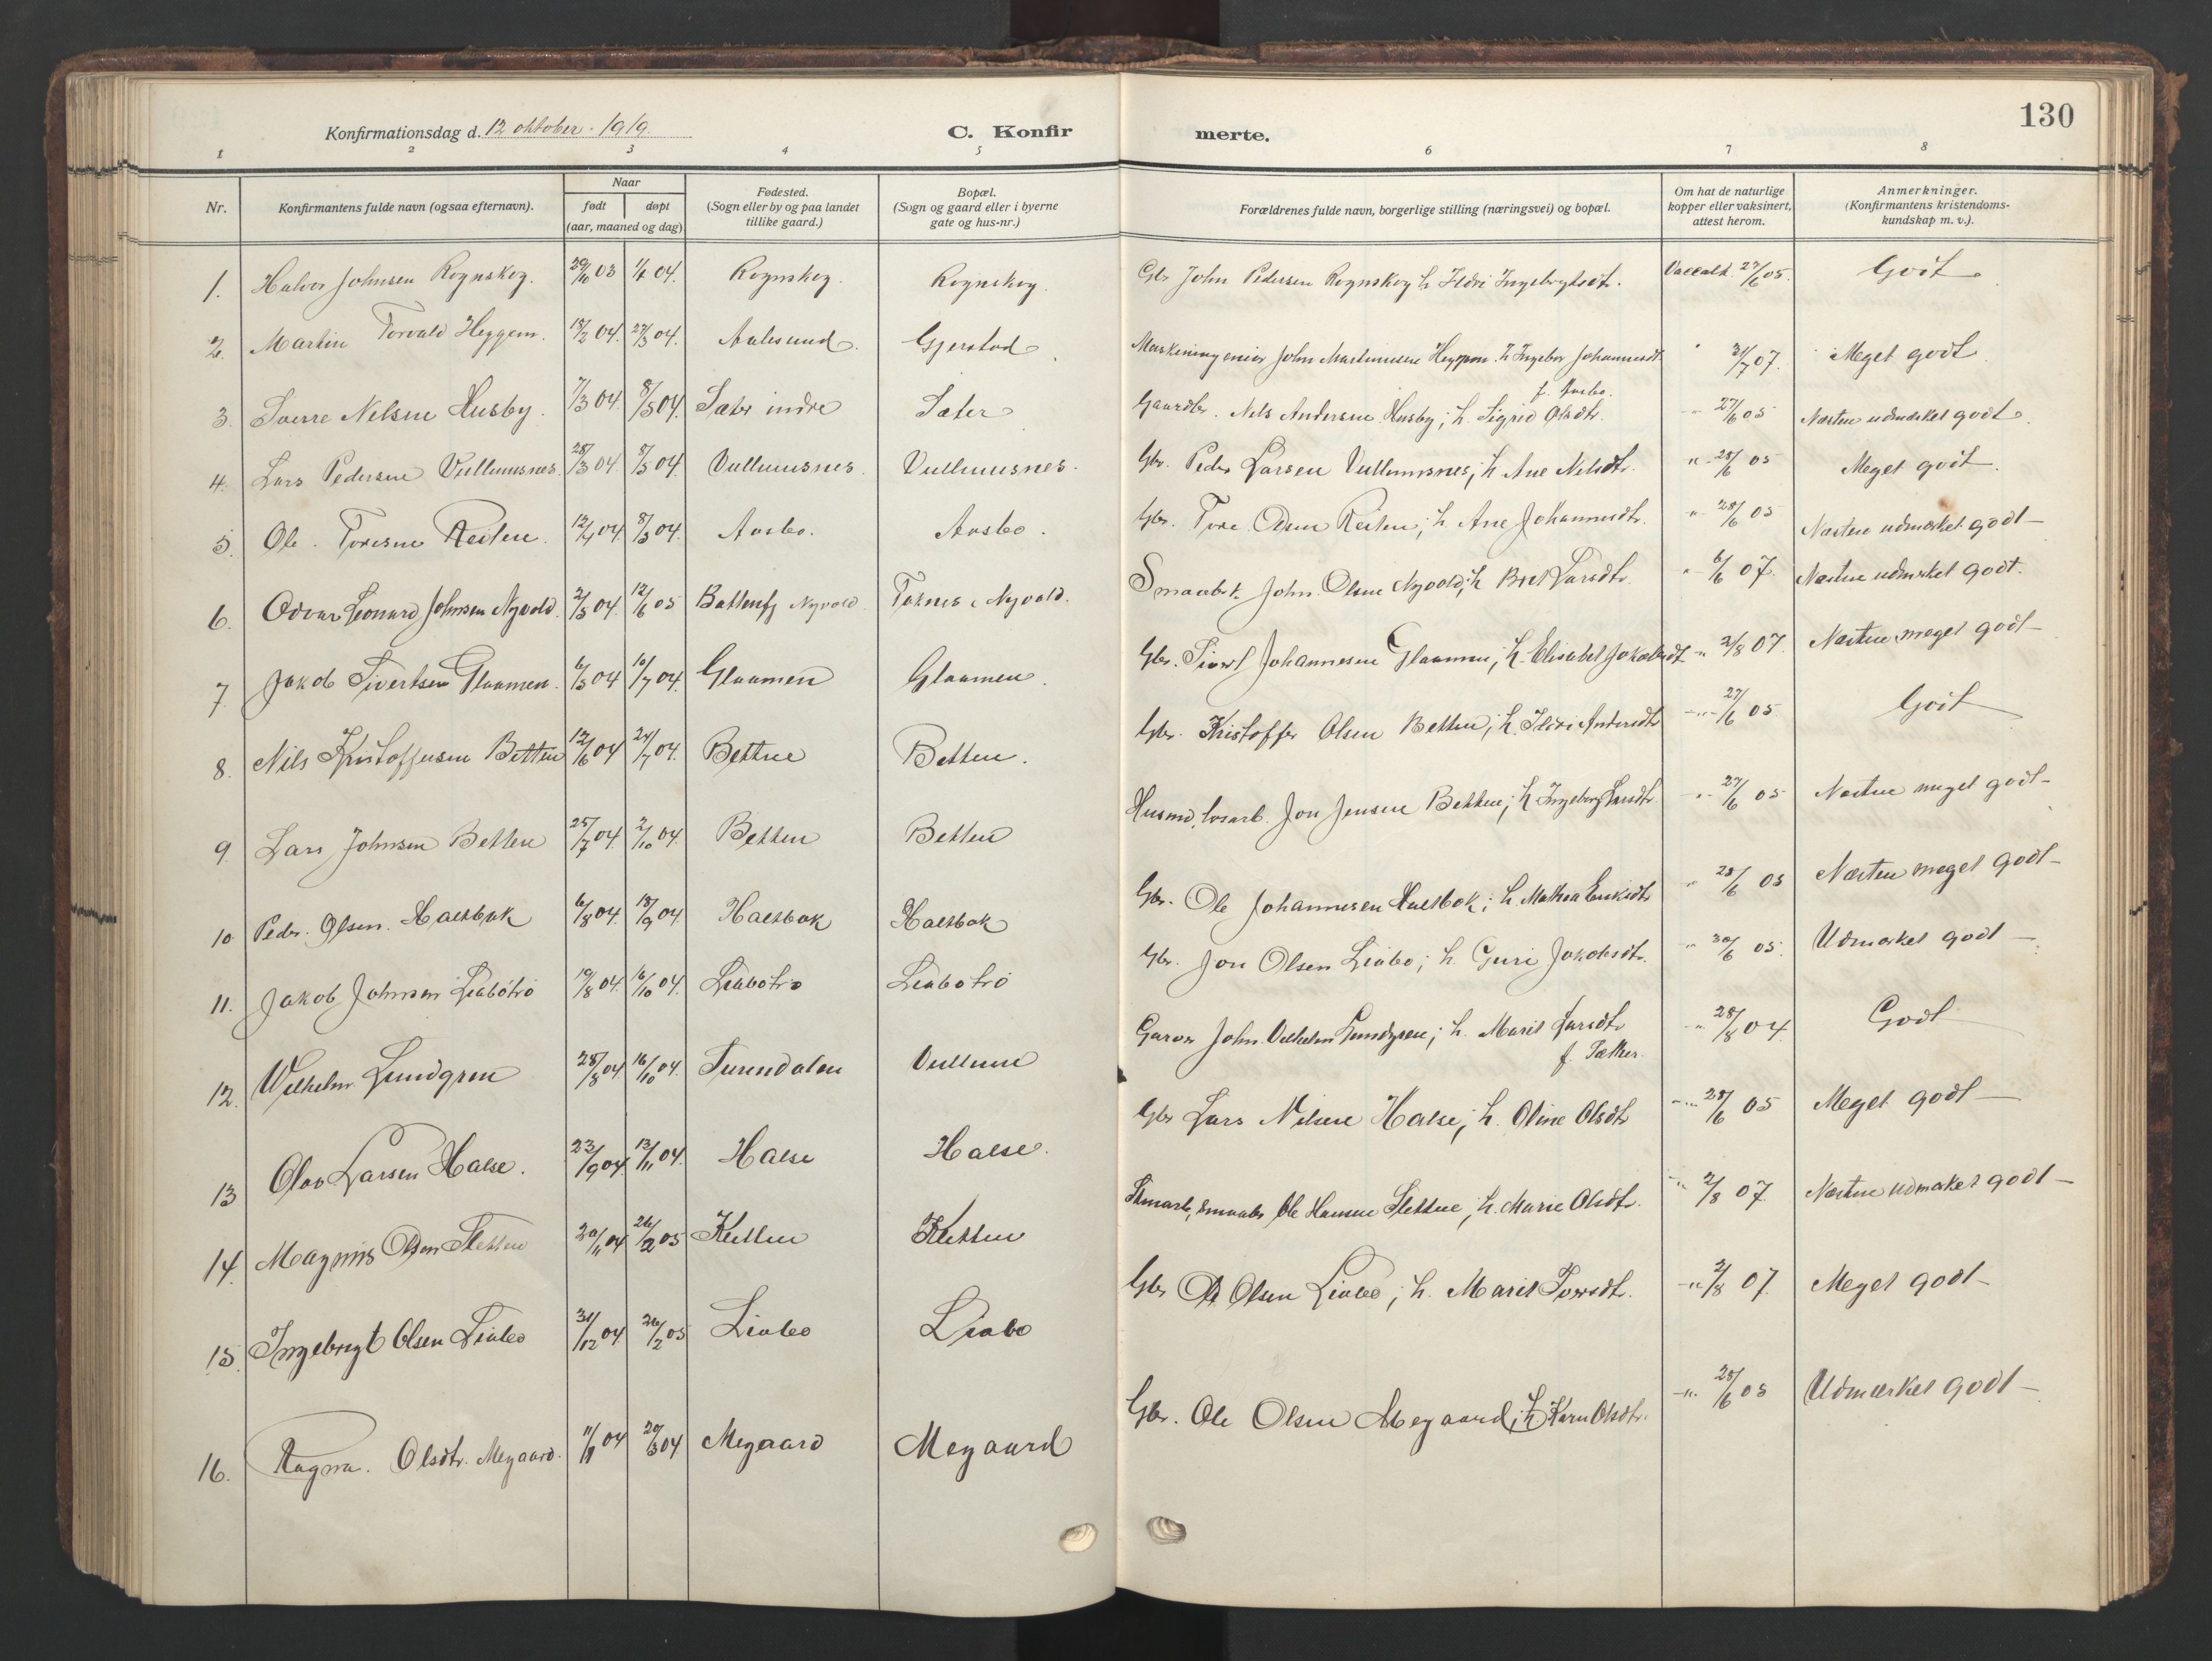 130
Konfirmationsdag d. 12 oktober 1919.
C. Konfirmerte.
1 2 3 4 5 6 7 8
Nr. Konfirmantens fulde navn (ogsaa efternavn). Naar født døpt (aar, maaned og dag) Fødested. (Sogn eller by og paa landet tillike gaard.) Bopæl. (Sogn og gaard eller i byerne gate og hus-nr.) Forældrenes fulde navn, borgerlige stilling (næringsvei) og bopæl. Om hat de naturlige kopper eller vaksinert, attest herom. Anmerkninger. (Konfirmantens kristendomskundskap m. v.).
1. Halvor Johnsen Rognskog. 03 04. Rognskog. Rognskog. Gbr John Pedersen Rognskog h. Ildri Ingebrigtsdt. 27/6 05. Godt
2. Martin Torvald Heggem. 18/2 04. 27/3 04. Aalesund. Gjerstad. John Martinusen Heggem h. Ingebor Johannesdt. f. Aasbo. " 31/7 07. Meget godt.
3. Sverre Nelsen Husby. 7/3 04. 8/5 04. Sæter indre Sæter Gaardbr. Nels Andersen Husby; h. Sigrid Olsdtr. " 27/6 05 Næsten udmerket godt.
4. Lars Pedersen Vullumsnes. 28/3 04. 8/5 04 Vullumsnes. Vullumsnes. Gbr. Peder Larsen Vullumsnes; h. Ane Nelsdtr. " 28/6 05 Meget godt.
5. Ole Toresen Reiten. 12/4 04. 8/5 04. Aasbo. Aasbo. Gbr. Tore Olsen Reiten; h. Ane Johannesdtr. " 28/6 05 Næsten udmerket godt
6. Odvar Leonard Johnsen Nyvold. 2/5 04. 12/6 05 Nyvold Nyvold. Smaabr. John Olsen Nyvold; h. Larsdtr. " 6/6 07. Næsten udmerket godt.
7. Jakob Sivertsen Glaamen. 6/5 04 10/7 04. Glaamen Glaamen. Gbr. Sivert Johannesen Glaamen; h. Elisabet Jakobsdt " 2/8 07. Næsten meget godt
8. Nils Kristoffersen Betten 12/6 04 24/7 04. Betten Betten. Gbr. Kristoffer Olsen Betten; h. Ildri Andersdtr " 27/6 05 Godt
9. Lars Johnsen Betten 25/7 04. 2/10 04. Betten Betten Husmd, Jon Jensen Betten; h. Ingeborg Larsdtr. " 27/6 05 Næsten meget godt
10 Peder Olsen Halsbak 6/8 04. 18/9 04 Halsbak Halsbak Gbr. Ole Johannesen Halsbak; h. Mathea " 28/6 05 Næsten meget godt
11. Jakob Johnsen Liabøtrø 19/8 04. 16/10 04. Liabøtrø Liabøtrø Gbr. Jon Olsen Liabø; h. Guri Jakobsdtr. " 30/6 05. Udmerket godt
12. Wilhelm Lundgren 28/8 04. 16/10 04. Surendalen Vullum Garver John Vilhelm Lundgren; h. Marit Larsdtr. f. Sæther. " 28/8 04. Godt
13 Olav Larsen Halse. 23/9 04. 13/11 04. Halse Halse. Gbr Lars Nilsen Halse; h. Oline Olsdtr " 28/6 05 Meget godt
14. Magnus Olsen Sletten 20/11 04 26/2 05 Ole Hansen Sletten; h. Marie Olsdtr. " 2/8 07. Næsten udmerket godt
15. Ingebrigt Olsen Liabø 31/12 04 26/2 05 Liabø Liabø Gbr Ol Olsen Liabø; h. Marit Iversdtr. " 2/8 07. Meget godt
16. Ragna Olsdtr. Megaard. 04 20/3 04 Megaard Megaard Gbr. Ole Olsen Megaard; h. Karn Olsdtr. " 28/6 05 Udmerket godt